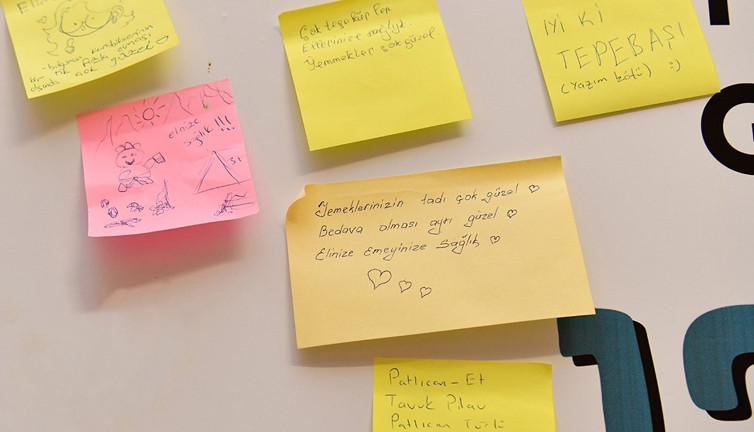 çok güzel
elinize
sağlık !!!
Çok teşekkür
Ellerinize sağlık
Yemmekler çok güzel
İYİ Kİ
TEPEBAŞI
(Yazım kötü) :)
Yemeklerinizin tadı çok güzel ♡
Bedava olması ayrı güzel ♡
Elinize Emeyinize Sağlık ♡
Patlıcan - Et
Tavuk Pilav
Patlıcan Türlü